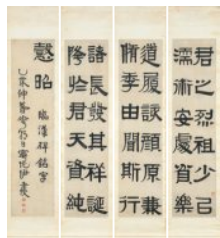 君之烈祖少㠯
濡術安貧樂
道履該顏原兼
脩季由聞斯行
諸長發其祥誕
降於君天資純
懿昭